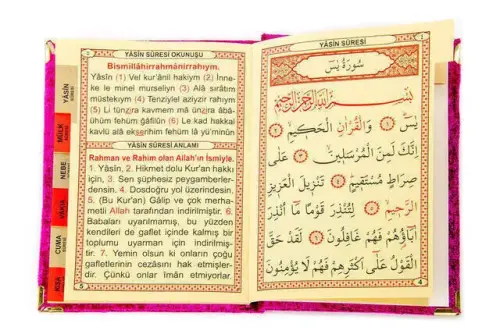 YÂSİN SÛRESİ OKUNUŞU
Bismillâhirrahmânirrahıym.
Yâsîn (1) Vel kur'ânil hakiym (2) İnne-
ke le minel murseliyn (3) Alâ sırâtım
müstekıym (4) Tenziylel aziyzir rahıym
(5) Li tünzira kavmem mâ ünzira âbâ-
ühüm fehüm ğâfilûn (6) Le kad hakkal
kavlü alâ ekserihim fehüm lâ yü'minûn
YÂSİN SÛRESİ ANLAMI
Rahman ve Rahim olan Allah'ın İsmiyle.
1. Yâsîn, 2. Hikmet dolu Kur'an hakkı
için, 3. Sen şüphesiz peygamberler-
densin. 4. Dosdoğru yol üzerindesin.
5. (Bu Kur'an) Gâlip ve çok merha-
metli Allah tarafından indirilmiştir. 6.
Babaları uyarılmamış, bu yüzden
kendileri de gaflet içinde kalmış bir
toplumu uyarman için indirilmiş-
tir. 7. Yemin olsun ki onların çoğu
gafletlerinin cezâsını hak etmişler-
dir. Çünkü onlar îman etmiyorlar.
5
YÂSİN
SÛRESİ
MÜLK
NEBE
VAKIA
CUMA
YÂSİN SÛRESİ
سُورَةُ يٰسٓ
بِسْمِ اللهِ الرَّحْمٰنِ الرَّحِيمِ
يٰسٓ ﴿١﴾ وَالْقُرْاٰنِ الْحَكِيمِ ﴿٢﴾
اِنَّكَ لَمِنَ الْمُرْسَلِينَ ﴿٣﴾ عَلٰى
صِرَاطٍ مُسْتَقِيمٍ ﴿٤﴾ تَنْزِيلَ الْعَزِيزِ
الرَّحِيمِ ﴿٥﴾ لِتُنْذِرَ قَوْمًا مَٓا اُنْذِرَ
اٰبَٓاؤُهُمْ فَهُمْ غَافِلُونَ ﴿٦﴾ لَقَدْ حَقَّ
الْقَوْلُ عَلٰٓى اَكْثَرِهِمْ فَهُمْ لَا يُؤْمِنُونَ
4